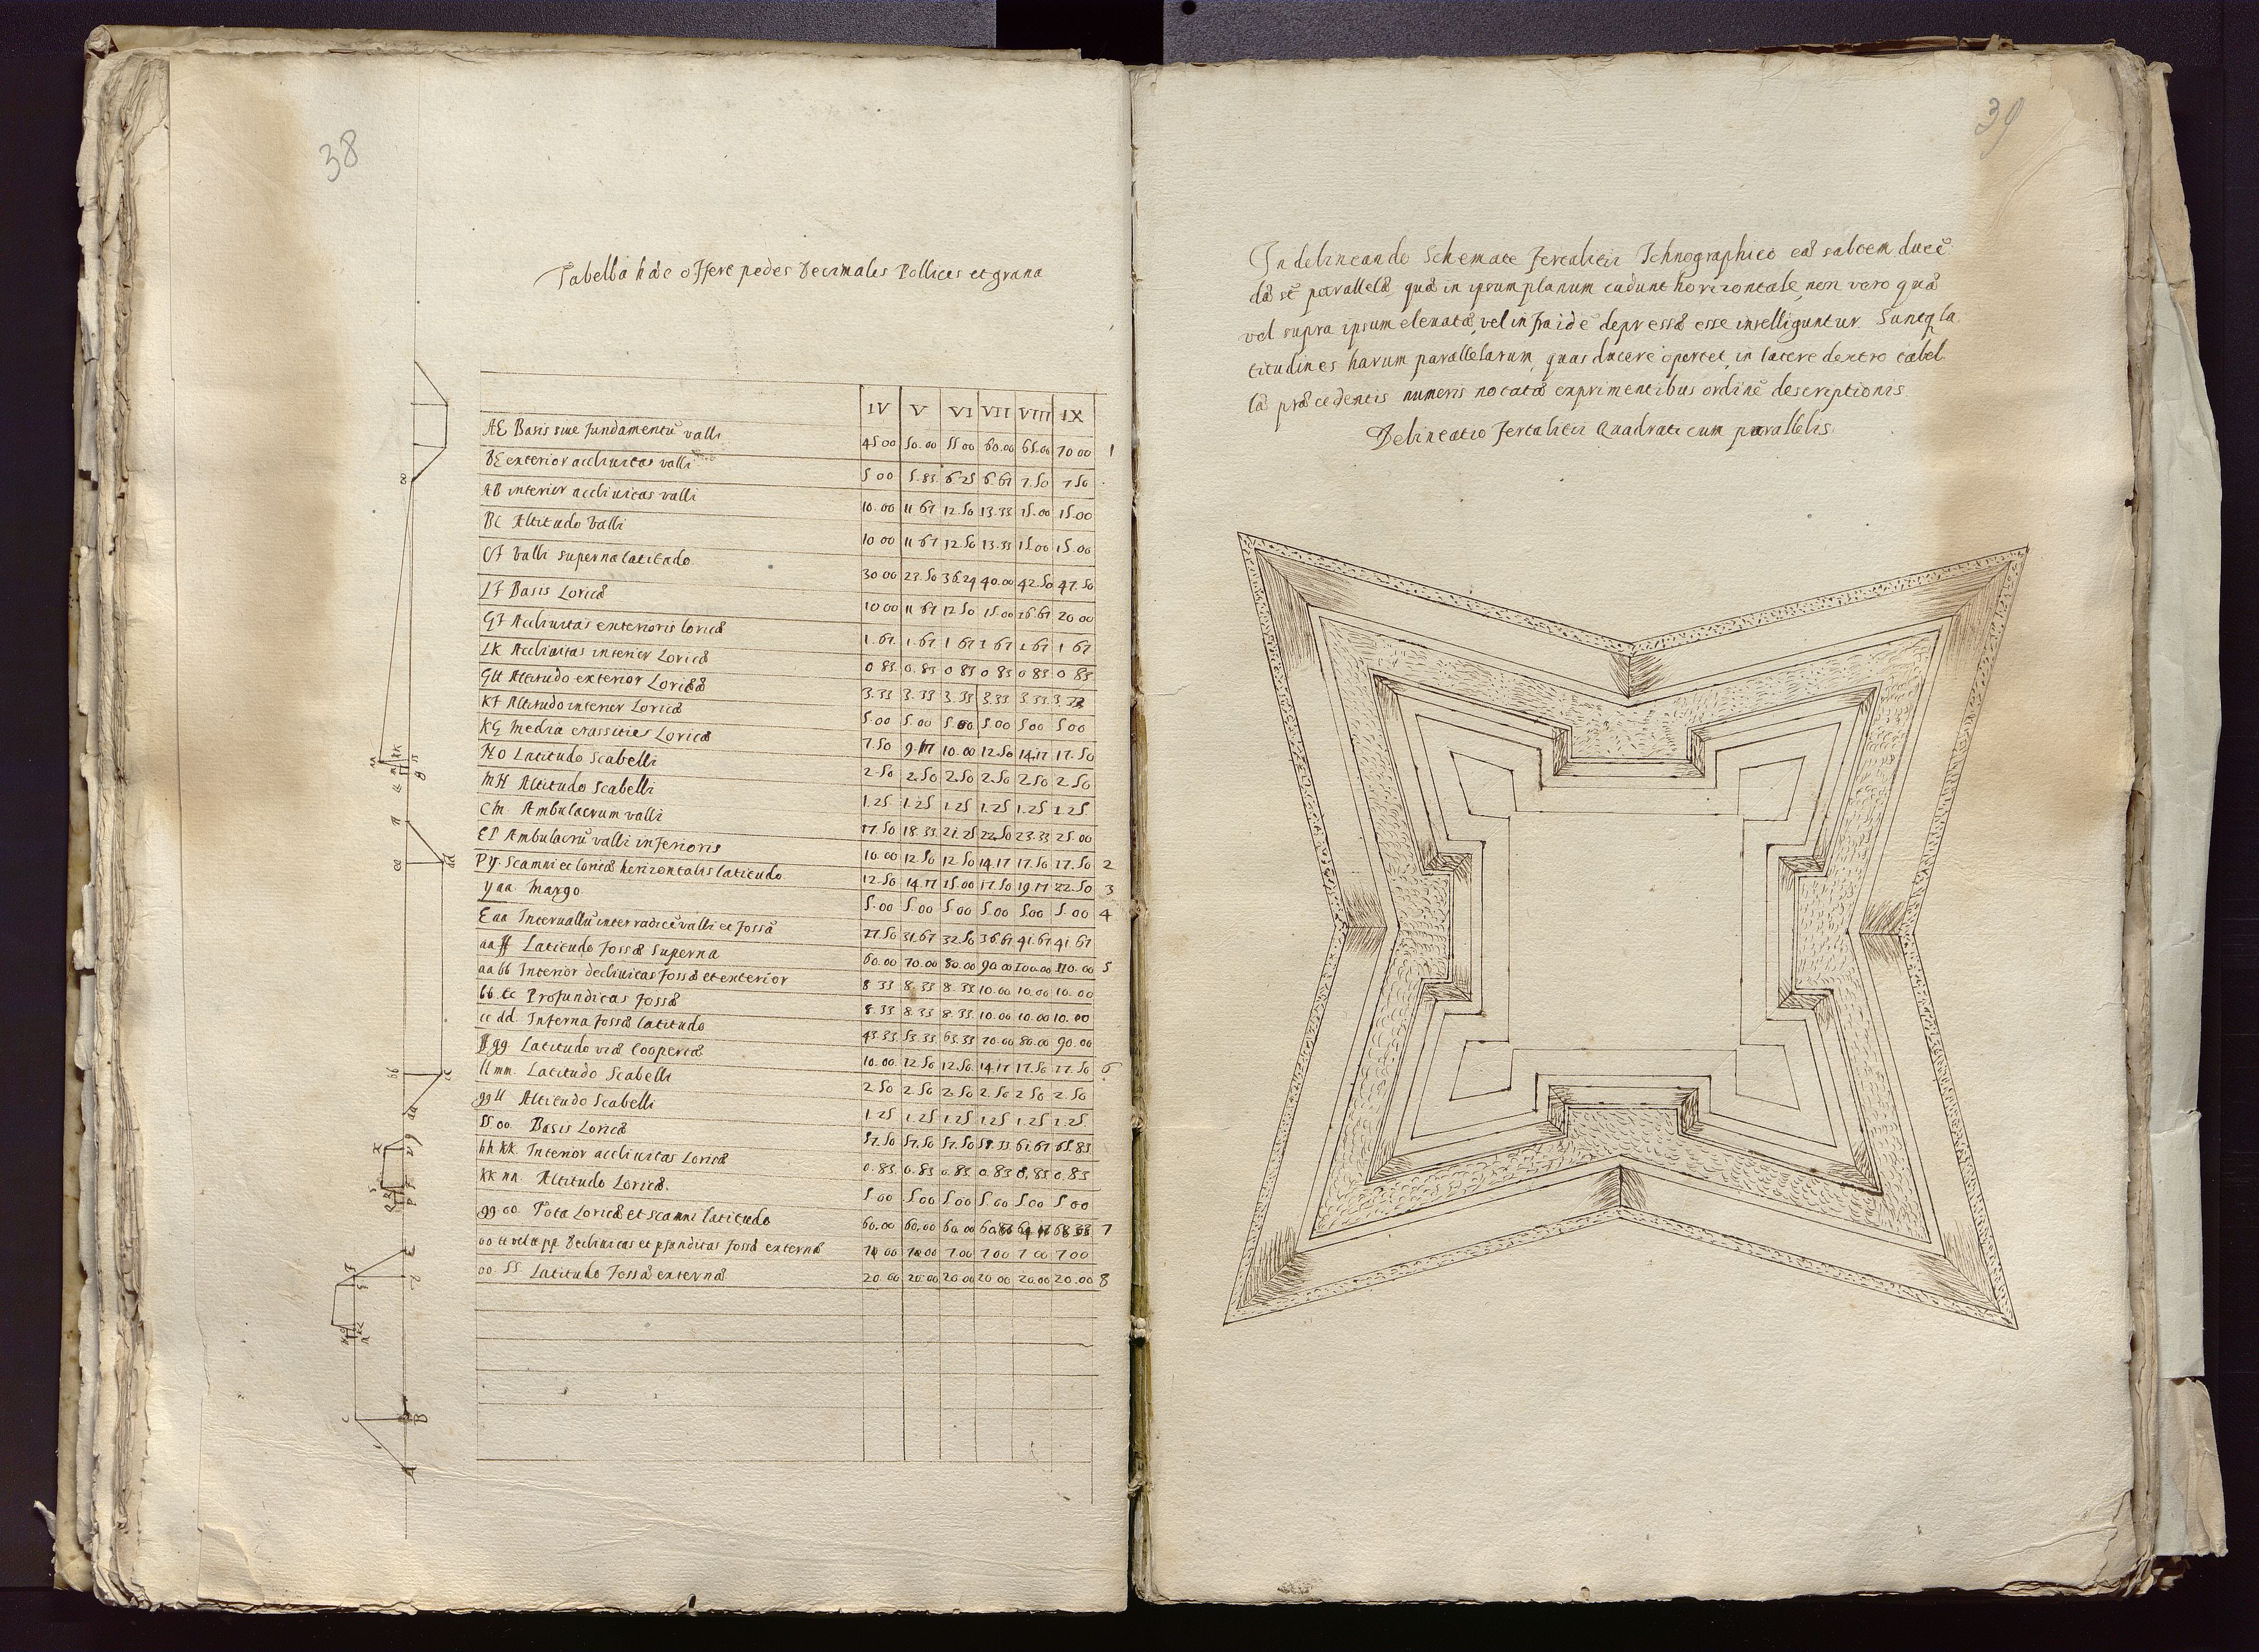 38
Tabella hæc offert pedes Decimales Pollices et grana
IV V VI VII VIII IX
AE Basis sive fundamentũ valli 45.00 50.00 55.00 60.00 65.00 70.00 1
DE exterior acclivitas valli 5.00 5.83 6.25 6.67 7.50 7.50
AB interior acclivitas valli 10.00 11.67 12.50 13.33 15.00 15.00
BC Altitudo Valli 10.00 11.67 12.50 13.33 15.00 15.00
CF Valli superna latitudo 30.00 23.50 36.24 40.00 42.50 47.50
IF Basis Loricæ 10.00 11.67 12.50 15.00 16.67 20.00
GF Acclivitas exterioris loricæ 1.67 1.67 1.67 1.67 1.67 1.67
IK Acclivitas interior Loricæ 0.83 0.83 0.83 0.83 0.83 0.83
GH Altitudo exterior Loricæ 3.33 3.33 3.33 3.33 3.33 3.33
KF Altitudo interior Loricæ 5.00 5.00 5.00 5.00 5.00 5.00
KG Media crassities Loricæ 7.50 9.17 10.00 12.50 14.17 17.50
NO Latitudo Scabelli 2.50 2.50 2.50 2.50 2.50 2.50
MN Altitudo Scabelli 1.25 1.25 1.25 1.25 1.25 1.25
CM Ambulacrum valli 17.50 18.33 21.25 22.50 23.33 25.00
EP Ambulacrũ valli inferioris 10.00 12.50 12.50 14.17 17.50 17.50 2
Py. Scamni et loricæ horizontalis latitudo 12.50 14.17 15.00 17.50 19.17 22.50 3
yaa Margo 5.00 5.00 5.00 5.00 5.00 5.00 4
Eaa Intervallũ inter radicẽ valli et fossã 27.50 31.67 32.50 36.67 41.67 41.67
aa ff Latitudo fossæ superna 60.00 70.00 80.00 90.00 100.00 110.00 5
aa bb Interior declivitas fossæ et exterior 8.33 8.33 8.33 10.00 10.00 10.00
bb. cc Profunditas fossæ 8.33 8.33 8.33 10.00 10.00 10.00
cc dd. Inferna fossæ latitudo 43.33 53.33 63.33 70.00 80.00 90.00
ff gg Latitudo viæ coopertæ 10.00 12.50 12.50 14.17 17.50 17.50 6
ll mm. Latitudo Scabelli 2.50 2.50 2.50 2.50 2.50 2.50
gg ll Altitudo Scabelli 1.25 1.25 1.25 1.25 1.25 1.25
oo. Basis Loricæ 57.50 57.50 57.50 58.33 61.67 65.83
hh kk. Interior acclivitas Loricæ 0.83 0.83 0.83 0.83 0.83 0.83
kk nn. Altitudo Loricæ. 5.00 5.00 5.00 5.00 5.00 5.00
gg oo Tota Loricæ et scamni latitudo 60.00 60.00 60.00 7
Declivitas et profunditas fossæ externæ 7.00 7.00 7.00 7.00
oo. SS Latitudo fossæ externæ 20.00 20.00 20.00 20.00 20.00 20.00 8
39
In delineando Schemate fortalitii Ichnographico eæ saltem ducẽ
dæ sũt parallelæ quæ in ipsum planum cadunt horizontale, non vero quæ
vel supra ipsum elevatæ, vel infra idẽ depressæ esse intelliguntur. Suntq la
titudines harum parallelarum, quas ducere oportet, in latere dextro tabel
læ præcedentis numeris notatæ exprimentibus ordinẽ descriptionis
Delineatio fortalitii Quadrati cum parallelis